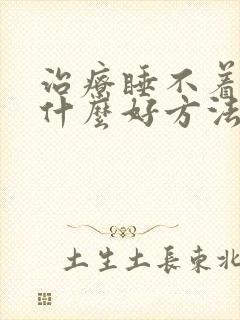 治療睡不着
什麼好方法
土生土長東北